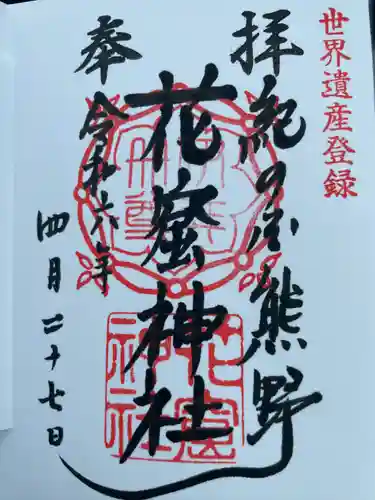 世界遺産登録
奉拝
紀の国熊野
花窟神社
令和六年
四月二十七日
花窟
神社